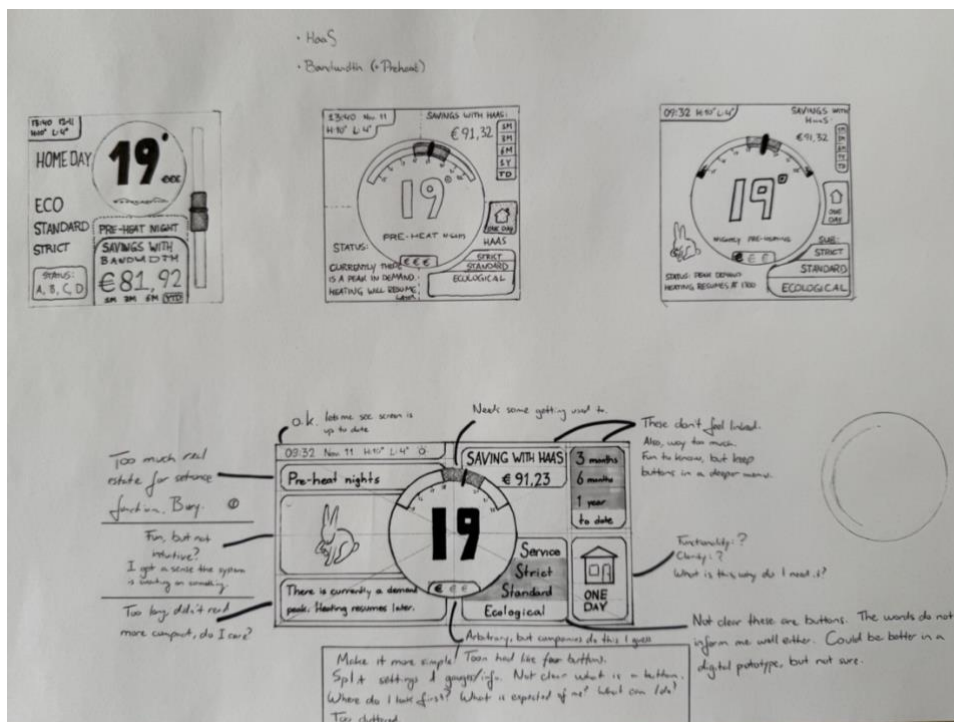 • HaaS
• Bandwidth (+ Preheat)
13:40 12-11
H:10° L:4°
HOME DAY
19°
€€€
ECO
STANDARD
STRICT
PRE-HEAT NIGHT
SAVINGS WITH
BANDWIDTH
€81,92
3M 6M YTD
STATUS:
A, B, C, D
13:40 Nov 11
H:10° L:4°
SAVINGS WITH HAAS:
€91,32
3M
6M
1Y
TD
19°
PRE-HEAT
ONE DAY
HAAS
STATUS:
CURRENTLY THERE
IS A PEAK IN DEMAND.
HEATING WILL RESUME
€€€
STRICT
STANDARD
ECOLOGICAL
09:32 H:10° L:4°
SAVINGS WITH
HAAS:
€91,32
19°
NIGHTLY PRE-HEATING
ONE
DAY
STATUS: PEAK DEMAND
HEATING RESUMES AT
€€€
STRICT
STANDARD
ECOLOGICAL
o.k. lets me see screen is
up to date
Needs some getting used to.
These don't feel linked.
Also, way too much.
Fun to know, but keep
buttons in a deeper menu.
Too much real
estate for
function. Busy.
Fun, but not
intuitive?
I get a sense the system
is waiting on something
Too long didn't read
more compact, do I care?
09:32 Nov 11 H:10° L:4°
Pre-heat nights
SAVING WITH HAAS
€91,23
3 months
6 months
1 year
to date
19
€€€
There is currently a demand
peak. Heating resumes later.
Service
Strict
Standard
Ecological
ONE
DAY
Functionality: ?
Clarity: ?
What is this, why do I need it?
Not clear these are buttons. The words do not
inform me well either. Could be better in a
digital prototype, but not sure.
Arbitrary, but companies do this I guess
Make it more simple! Toon had like four buttons.
Split settings & gauges/info. Not clear what is a button.
Where do I look first? What is expected of me? What can I do?
Too cluttered.